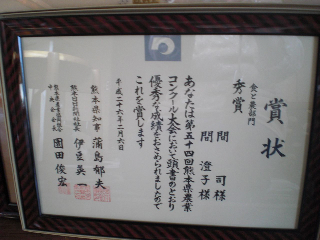 賞状
食と農部門
秀賞
間 司様
間 澄子様
あなたは第五十四回熊本県農業
コンクール大会において頭書のとおり
優秀な成績をおさめられましたので
これを賞します
平成二十六年二月六日
熊本県知事 蒲島郁夫
熊本日日新聞社社長 伊豆英一
熊本県農業協同組合中央会会長 園田俊宏